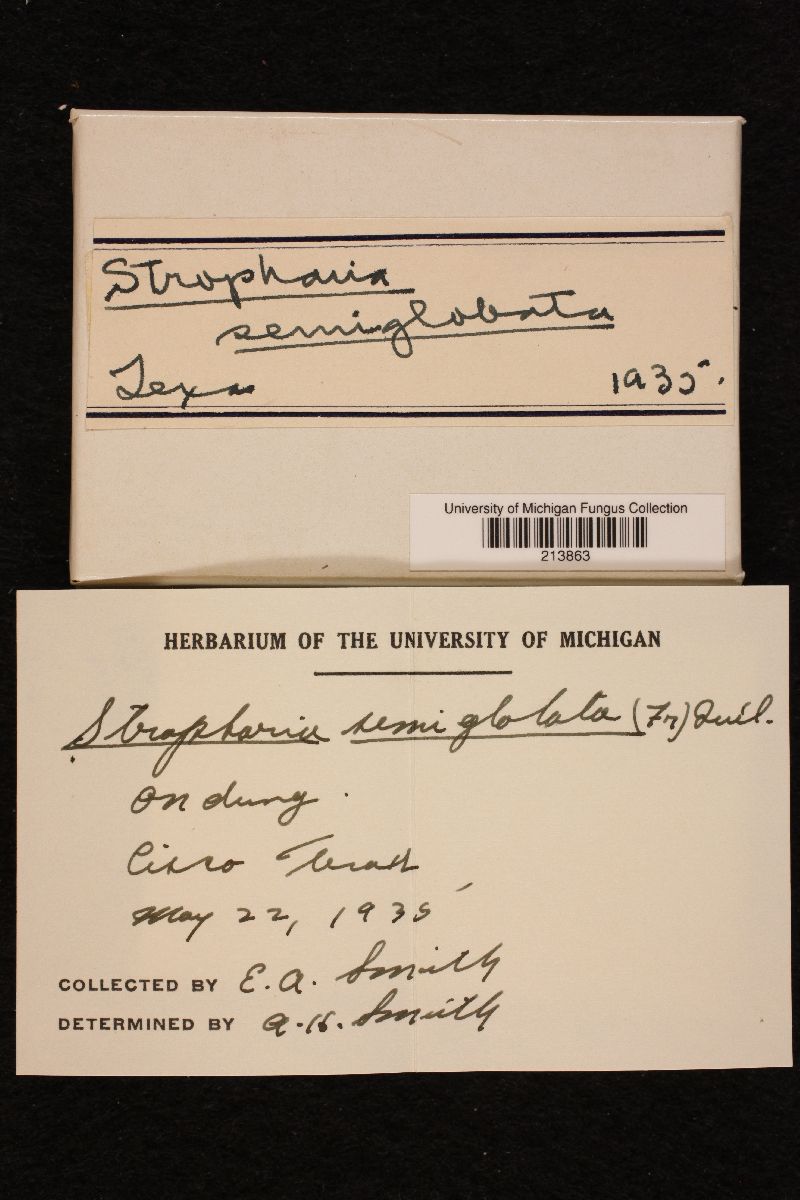 Stropharia
semiglobata
Texas 1935.
University of Michigan Fungus Collection
213863
HERBARIUM OF THE UNIVERSITY OF MICHIGAN
Stropharia semiglobata (Fr) Quél.
On dung.
Cisco Texas
May 22, 1935
COLLECTED BY E. A. Smith
DETERMINED BY A. H. Smith